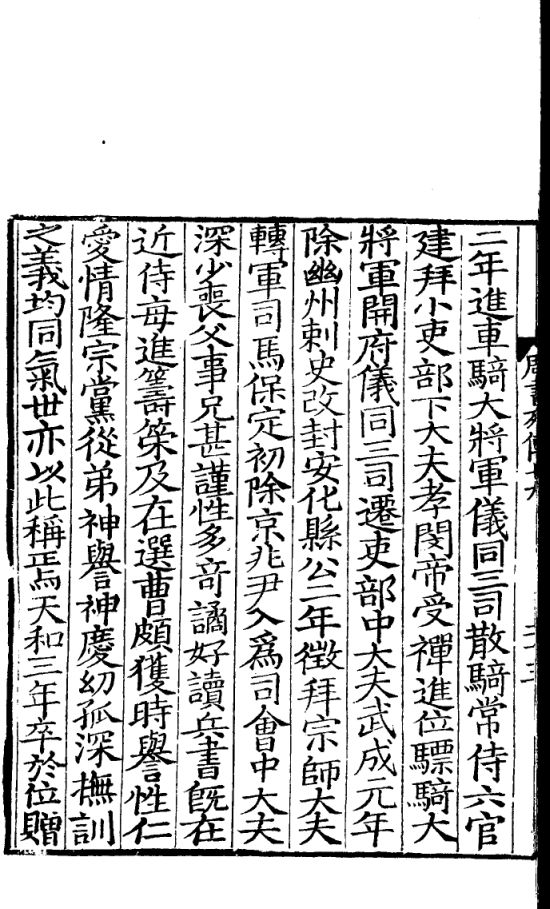 二年進車騎大將軍儀同三司散騎常侍六官
建拜小吏部下大夫孝閔帝受禪進位驃騎大
將軍開府儀同三司遷吏部中大夫武成元年
除豳州刺史改封安化縣公二年徵拜宗師大夫
轉軍司馬保定初除京兆尹入爲司會中大夫
深少喪父事兄甚謹性多竒譎好讀兵書旣在
近侍每進籌策及在選曹頗獲時譽性仁
愛情隆宗黨從弟神譽神慶幼孤深撫訓
之義均同氣世亦以此稱焉天和三年卒於位贈